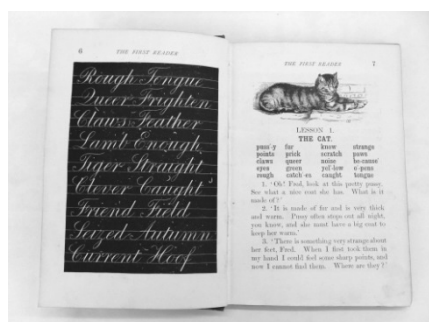 6 THE FIRST READER
Rough Tongue
Queer Frighten
Claws Feather
Lamb Enough
Tiger Straight
Clever Caught
Friend Field
Seized Autumn
Current Hoof
THE FIRST READER 7
LESSON 1.
THE CAT.
puss-y fur know strange
points prick scratch paws
claws queer noise be-cause'
eyes green yel-low o'-pens
rough catch-es caught tongue
1. 'Oh! Fred, look at this pretty pussy.
See what a nice coat she has. What is it
made of?'
2. 'It is made of fur and is very thick
and warm. Pussy often stops out all night,
you know, and she must have a big coat to
keep her warm.'
3. 'There is something very strange about
her feet, Fred. When I first took them in
my hand I could feel some sharp points, and
now I cannot find them. Where are they?'